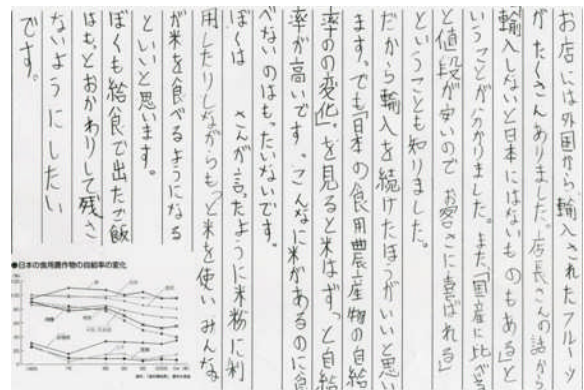 お店には外国から輸入されたフルーツ
がたくさんありました。店長さんの話から
輸入しないと日本にはないものもある」と
いうことが分かりました。また「国産に比べる
と値段が安いので お客さまに喜ばれる」
ということも知りました。
だから輸入を続けたほうがいいと思い
ます。でも「日本の食用農産物の自給
率のの変化」を見ると米はずっと自給
率が高いです。こんなに米があるのに食
べないのはもったいないです。
ぼくは さんが言ったように米粉に利
用したりしながらもっと米を使い みんな
が米を食べるようになる
といいと思います。
ぼくも給食で出たご飯
はもっとおかわりして残さ
ないようにしたい
です。
●日本の食用農作物の自給率の変化